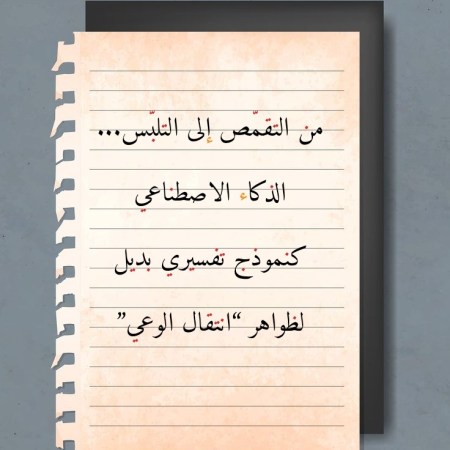 من التقمّص إلى التلبّس...
الذكاء الاصطناعي
كنموذج تفسيري بديل
لظواهر “انتقال الوعي”